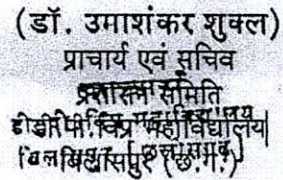 (डॉ. उमाशंकर शुक्ल)
प्राचार्य एवं सचिव
प्रशासन समिति
डी.पी. विप्र महाविद्यालय
बिलासपुर (छ.ग.)